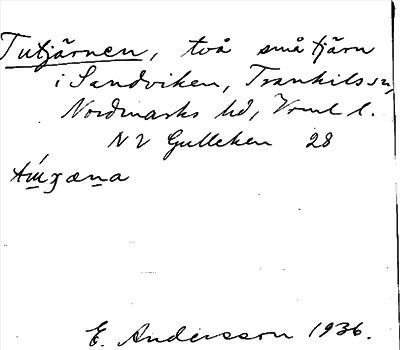 Tutjärnen, två små tjärn
i Sandviken, Trankils sn,
Nordmarks hd, Vrml l.
NV Gulleken 28
E. Andersson 1936.